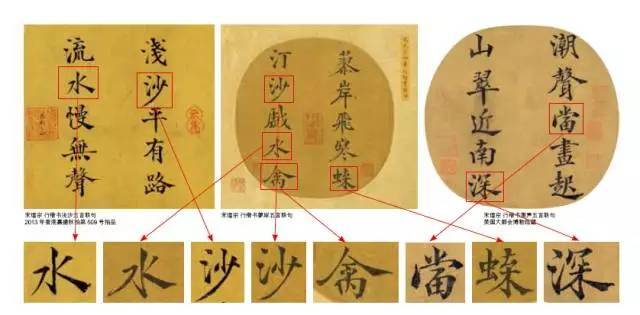 淺沙平有路
流水慢無聲
蓼岸飛寒蝶
汀沙戲水禽
潮聲當晝起
山翠近南深
宋理宗 行楷书浅沙五言联句
2013 年香港嘉德秋拍第 509 号拍品
宋理宗 行楷书蓼岸五言联句
宋理宗 行楷书潮声五言联句
美国大都会博物馆藏
水 水 沙 沙 禽 當 蝶 深